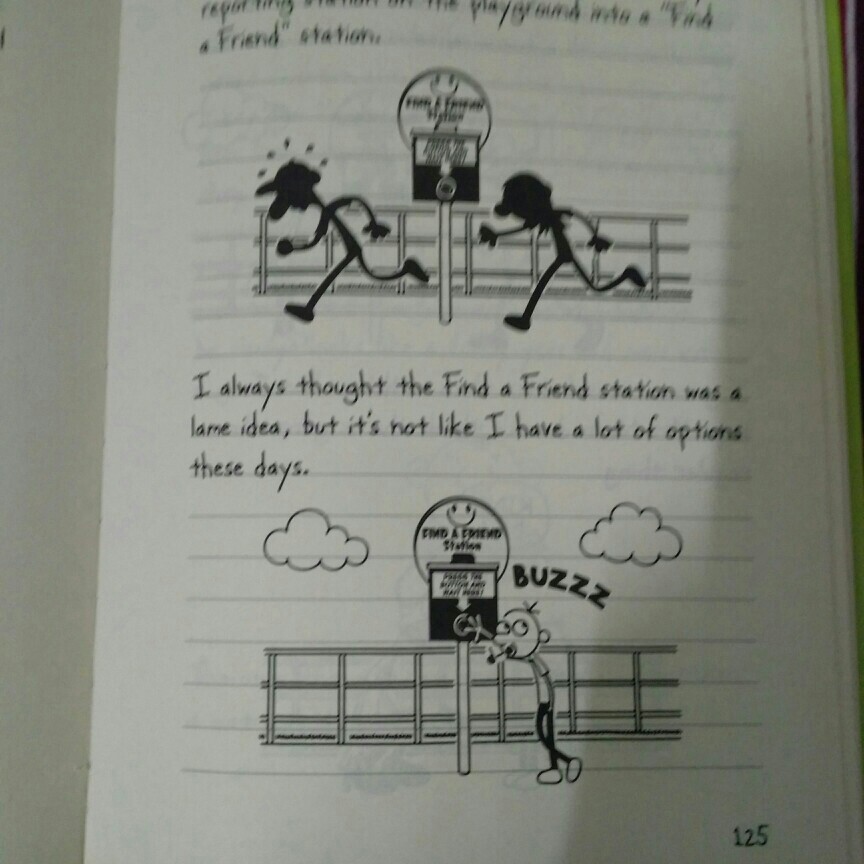 reporting station on the playground into a "Find
a Friend" station.
FIND A FRIEND
Station
PRESS THE
I always thought the Find a Friend station was a
lame idea, but it's not like I have a lot of options
these days.
FIND A FRIEND
Station
PRESS THE
BUTTON AND
WAIT HERE!
BUZZZ
125